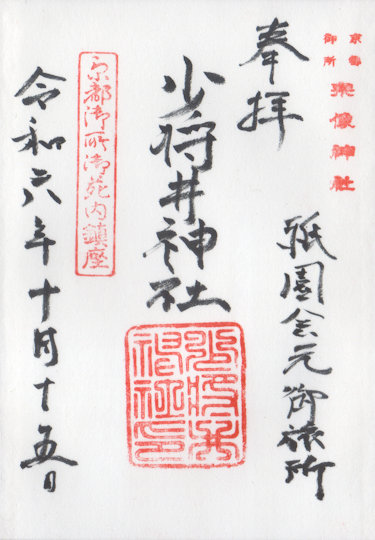 京都
御所
宗像神社
奉拝
祇園会元御旅所
少将井神社
少将井神社印
京都御所御苑内鎮座
令和六年十月十五日